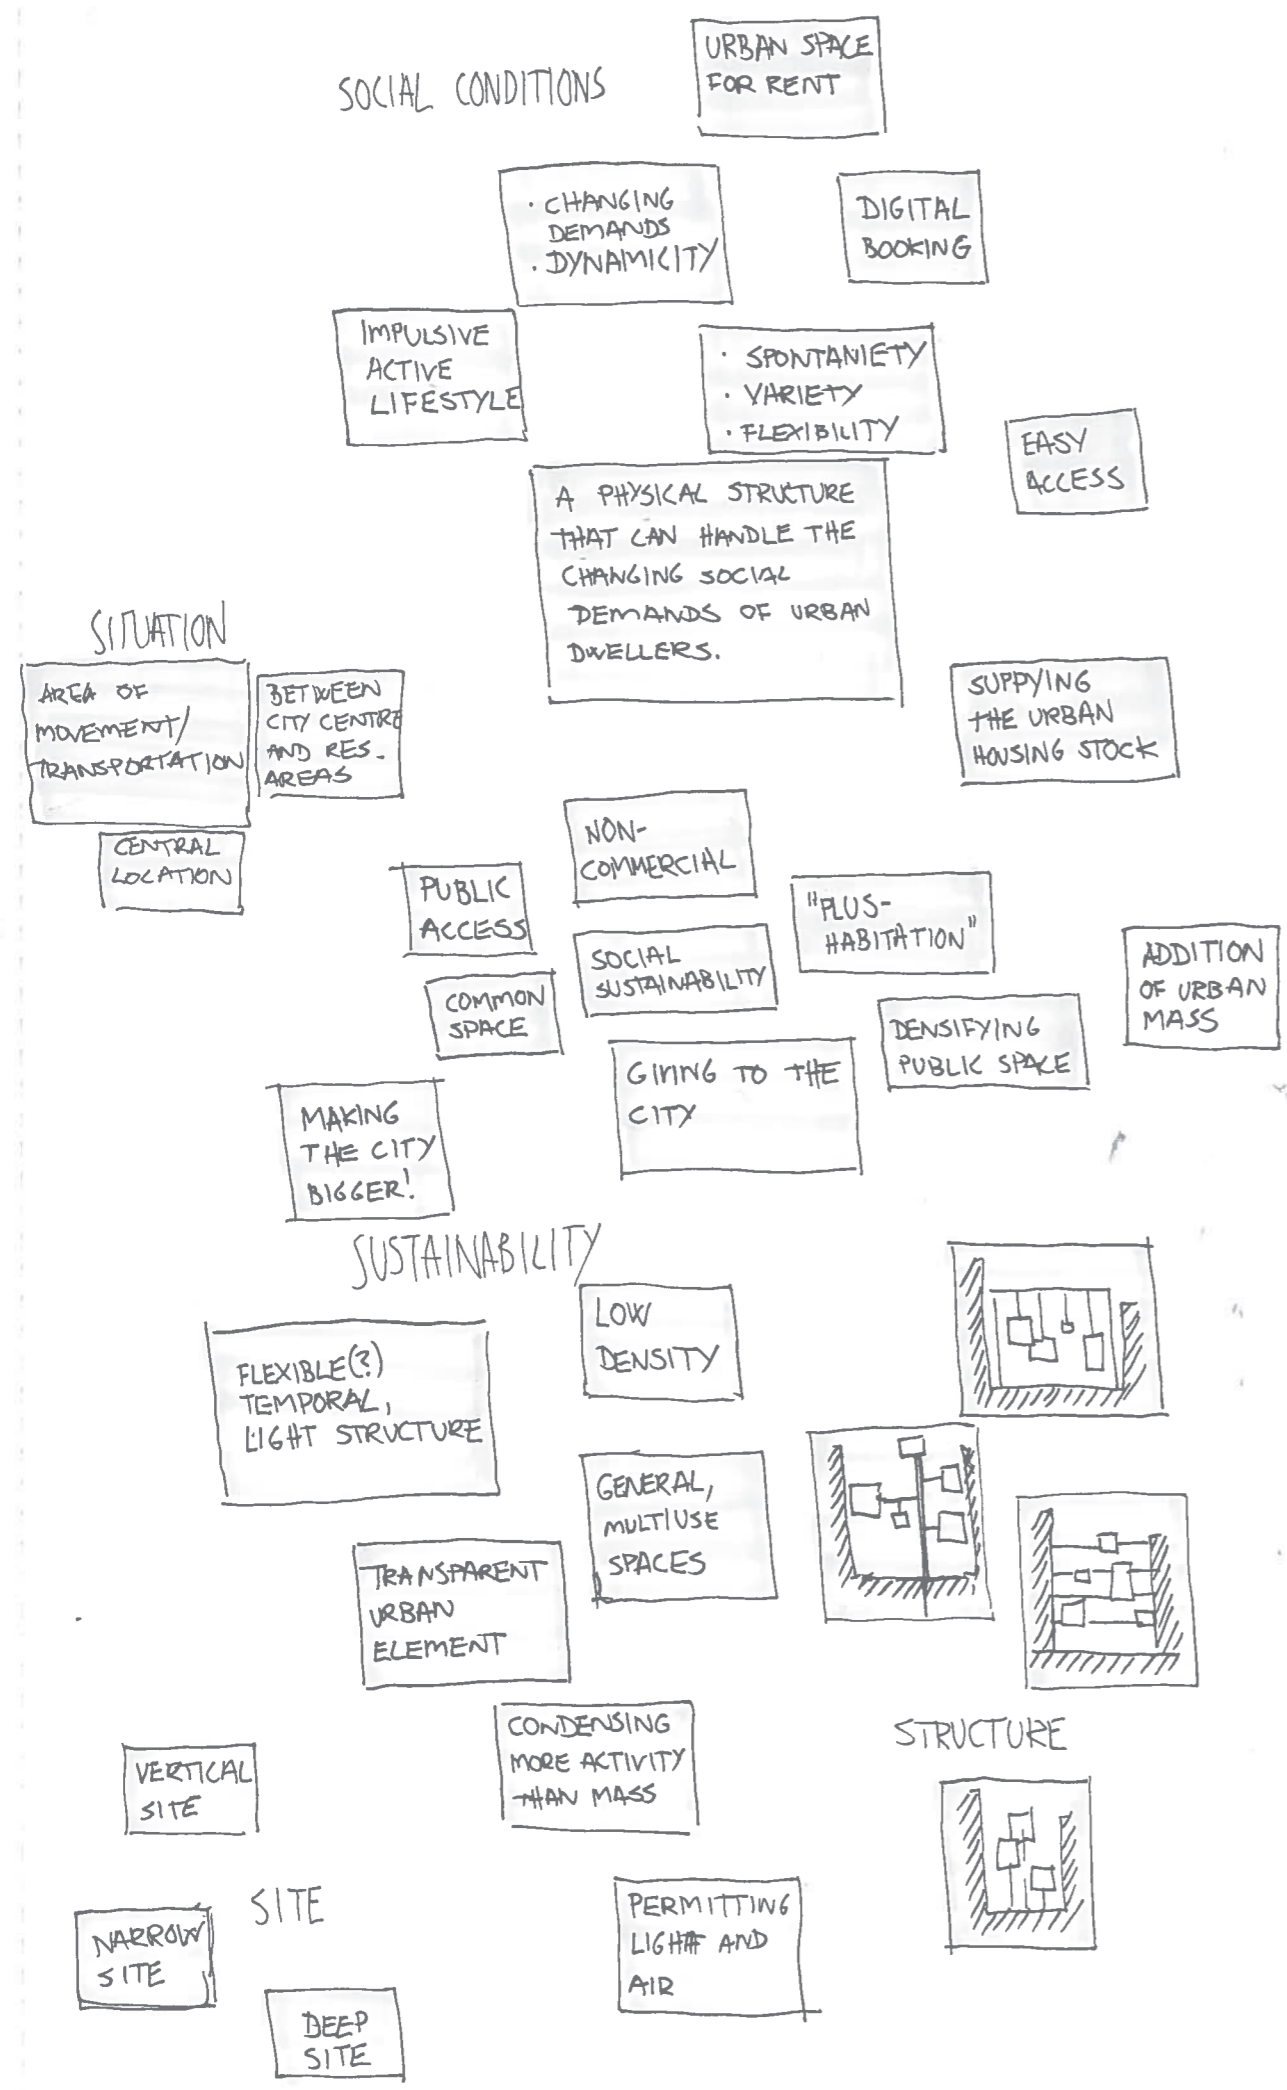 URBAN SPACE
FOR RENT
SOCIAL CONDITIONS
· CHANGING
DEMANDS
· DYNAMICITY
DIGITAL
BOOKING
IMPULSIVE
ACTIVE
LIFESTYLE
· SPONTANIETY
· VARIETY
· FLEXIBILITY
EASY
ACCESS
A PHYSICAL STRUCTURE
THAT CAN HANDLE THE
CHANGING SOCIAL
DEMANDS OF URBAN
DWELLERS.
SITUATION
AREA OF
MOVEMENT/
TRANSPORTATION
BETWEEN
CITY CENTRE
AND RES.
AREAS
CENTRAL
LOCATION
SUPPYING
THE URBAN
HOUSING STOCK
NON-
COMMERCIAL
PUBLIC
ACCESS
"PLUS-
HABITATION"
SOCIAL
SUSTAINABILITY
ADDITION
OF URBAN
MASS
COMMON
SPACE
DENSIFYING
PUBLIC SPACE
GIVING TO THE
CITY
MAKING
THE CITY
BIGGER!
SUSTAINABILITY
LOW
DENSITY
FLEXIBLE(?)
TEMPORAL,
LIGHT STRUCTURE
GENERAL,
MULTIUSE
SPACES
TRANSPARENT
URBAN
ELEMENT
CONDENSING
MORE ACTIVITY
THAN MASS
STRUCTURE
VERTICAL
SITE
SITE
NARROW
SITE
PERMITTING
LIGHT AND
AIR
DEEP
SITE